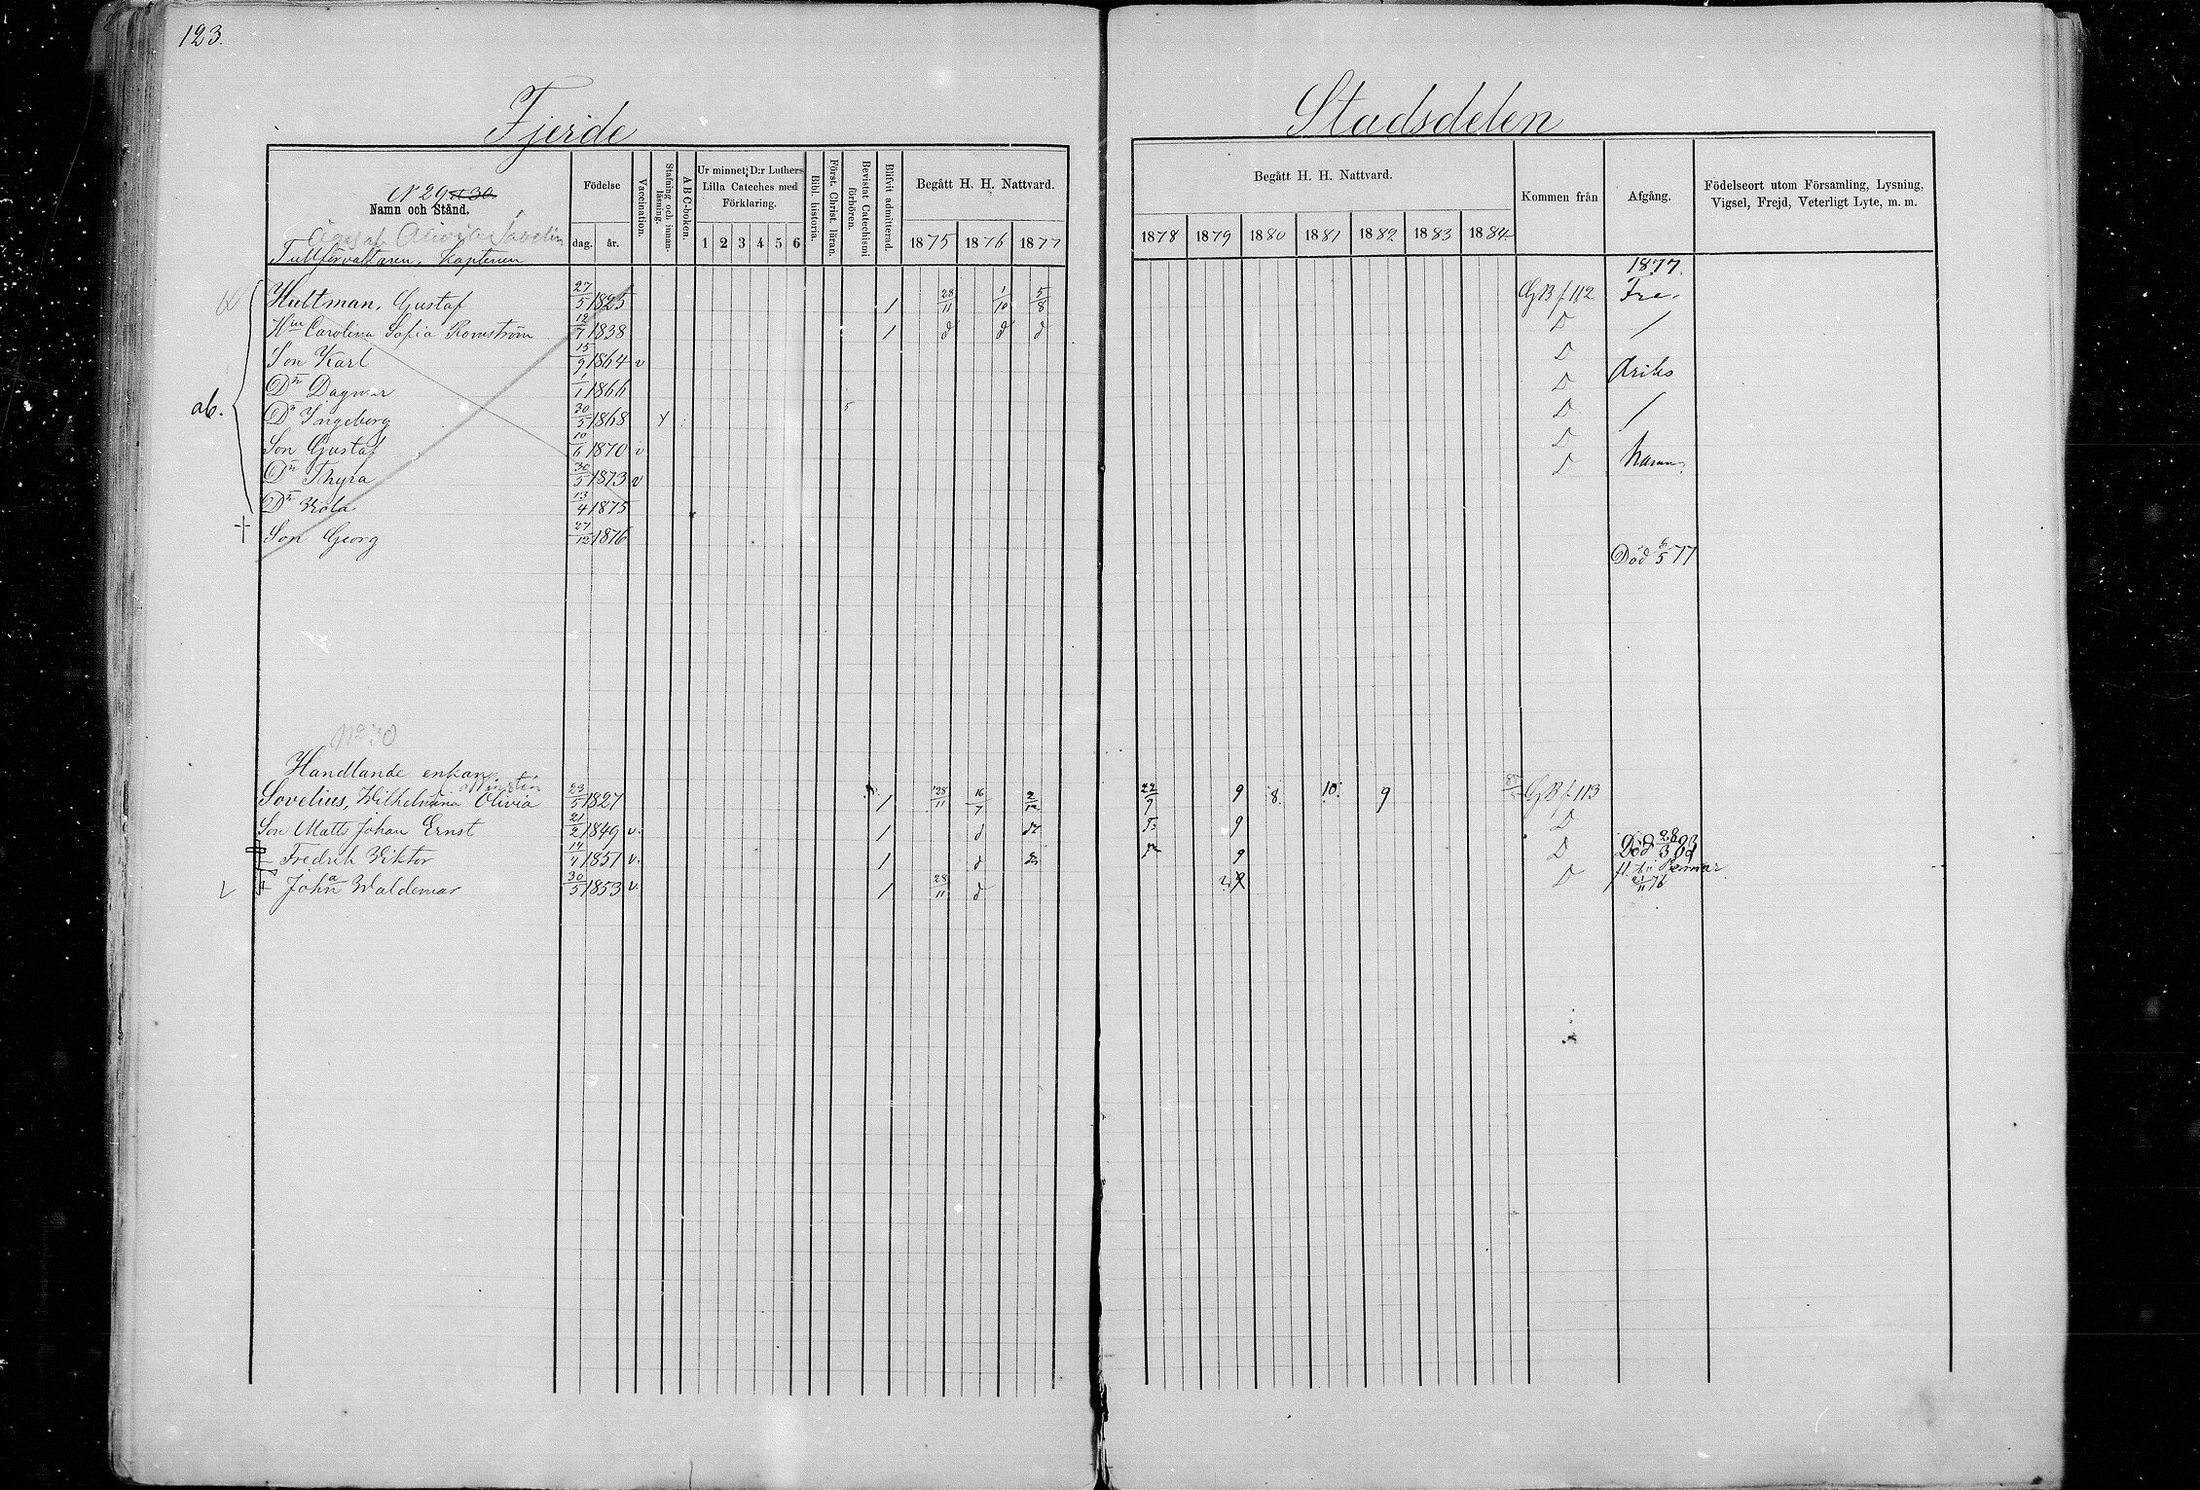 123.
Fjerde Stadsdelen
Nº 29 et 30
Namn och Stånd.
Födelse
dag. år.
Vaccination.
Stafning och innanläsning.
A B C-boken.
Ur minnet; D:r Luthers Lilla Cateches med Förklaring.
1 2 3 4 5 6
Bibl. historia.
Först. Christ. läran.
Bevistat Catechismi förhören.
Blifvit admitterad.
Begått H. H. Nattvard.
1875 1876 1877
Begått H. H. Nattvard.
1878 1879 1880 1881 1882 1883 1884
Kommen från
Afgång.
Födelseort utom Församling, Lysning, Vigsel, Frejd, Veterligt Lyte, m. m.
Äges af Olivia Sovelius
Tullförvaltaren, Kaptenen
1877.
Hultman, Gustaf 27/5 1825 1 28/11 1/10 5/8 GB f 112 Fre-
Hu Carolina Sofia 12/7 1838 1 d d d D /
Son Karl 15/9 1864 v D
Dr Dagmar 1/1 1866 D driks
ab.
Dr Ingeborg 30/5 1868 Y 5 D /
Son Gustaf 10/6 1870 v D
Dr Thyra 30/5 1873 v D hamn.
Dr Viola 13/4 1875
† Son Georg 27/12 1876 Död 6/5 77
Nº 30
Handlande enkan
Sovelius, Wilhelmina Olivia 23/5 1827 1 28/11 16/7 22/9 9 8 10 9 GB f. 113
Son Matts Johan Ernst 21/2 1849 v. 1 d 9 D
Fredrik Viktor 14/4 1851 v. 1 d 9 D Död 28/3
Johan Waldemar 30/5 1853 v. 1 28/11 d D